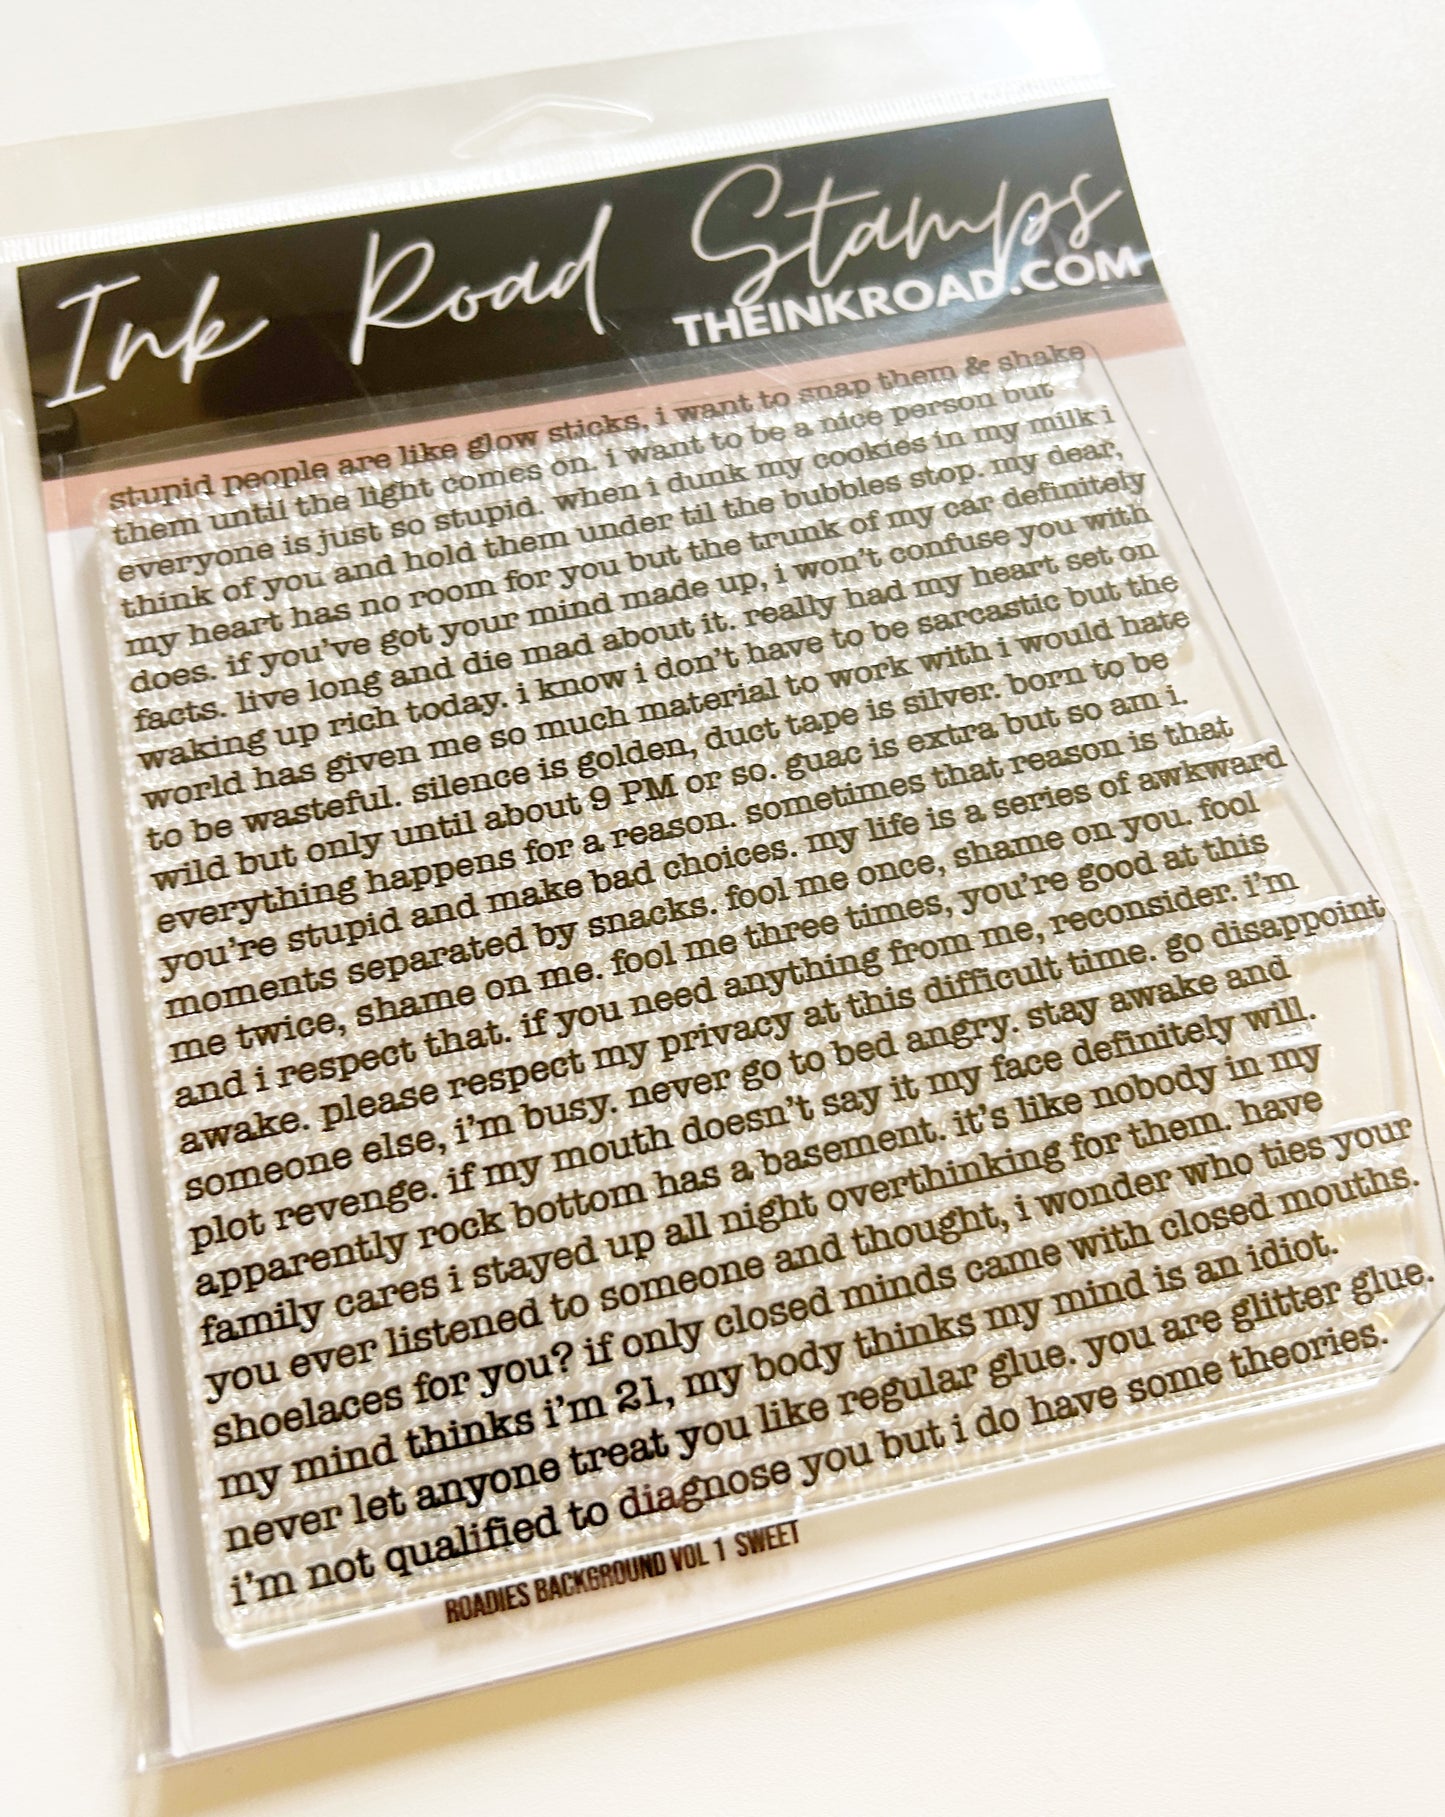 Ink Road Stamps
THEINKROAD.COM
stupid people are like glow sticks, i want to snap them & shake
them until the light comes on. i want to be a nice person but
everyone is just so stupid. when i dunk my cookies in my milk i
think of you and hold them under til the bubbles stop. my dear,
my heart has no room for you but the trunk of my car definitely
does. if you've got your mind made up, i won't confuse you with
facts. live long and die mad about it. really had my heart set on
waking up rich today. i know i don't have to be sarcastic but the
world has given me so much material to work with i would hate
to be wasteful. silence is golden, duct tape is silver. born to be
wild but only until about 9 PM or so. guac is extra but so am i.
everything happens for a reason. sometimes that reason is that
you're stupid and make bad choices. my life is a series of awkward
moments separated by snacks. fool me once, shame on you. fool
me twice, shame on me. fool me three times, you're good at this
and i respect that. if you need anything from me, reconsider. i'm
awake. please respect my privacy at this difficult time. go disappoint
someone else, i'm busy. never go to bed angry. stay awake and
plot revenge. if my mouth doesn't say it my face definitely will.
apparently rock bottom has a basement. it's like nobody in my
family cares i stayed up all night overthinking for them. have
you ever listened to someone and thought, i wonder who ties your
shoelaces for you? if only closed minds came with closed mouths.
my mind thinks i'm 21, my body thinks my mind is an idiot.
never let anyone treat you like regular glue. you are glitter glue.
i'm not qualified to diagnose you but i do have some theories.
ROADIES BACKGROUND VOL 1 SWEET